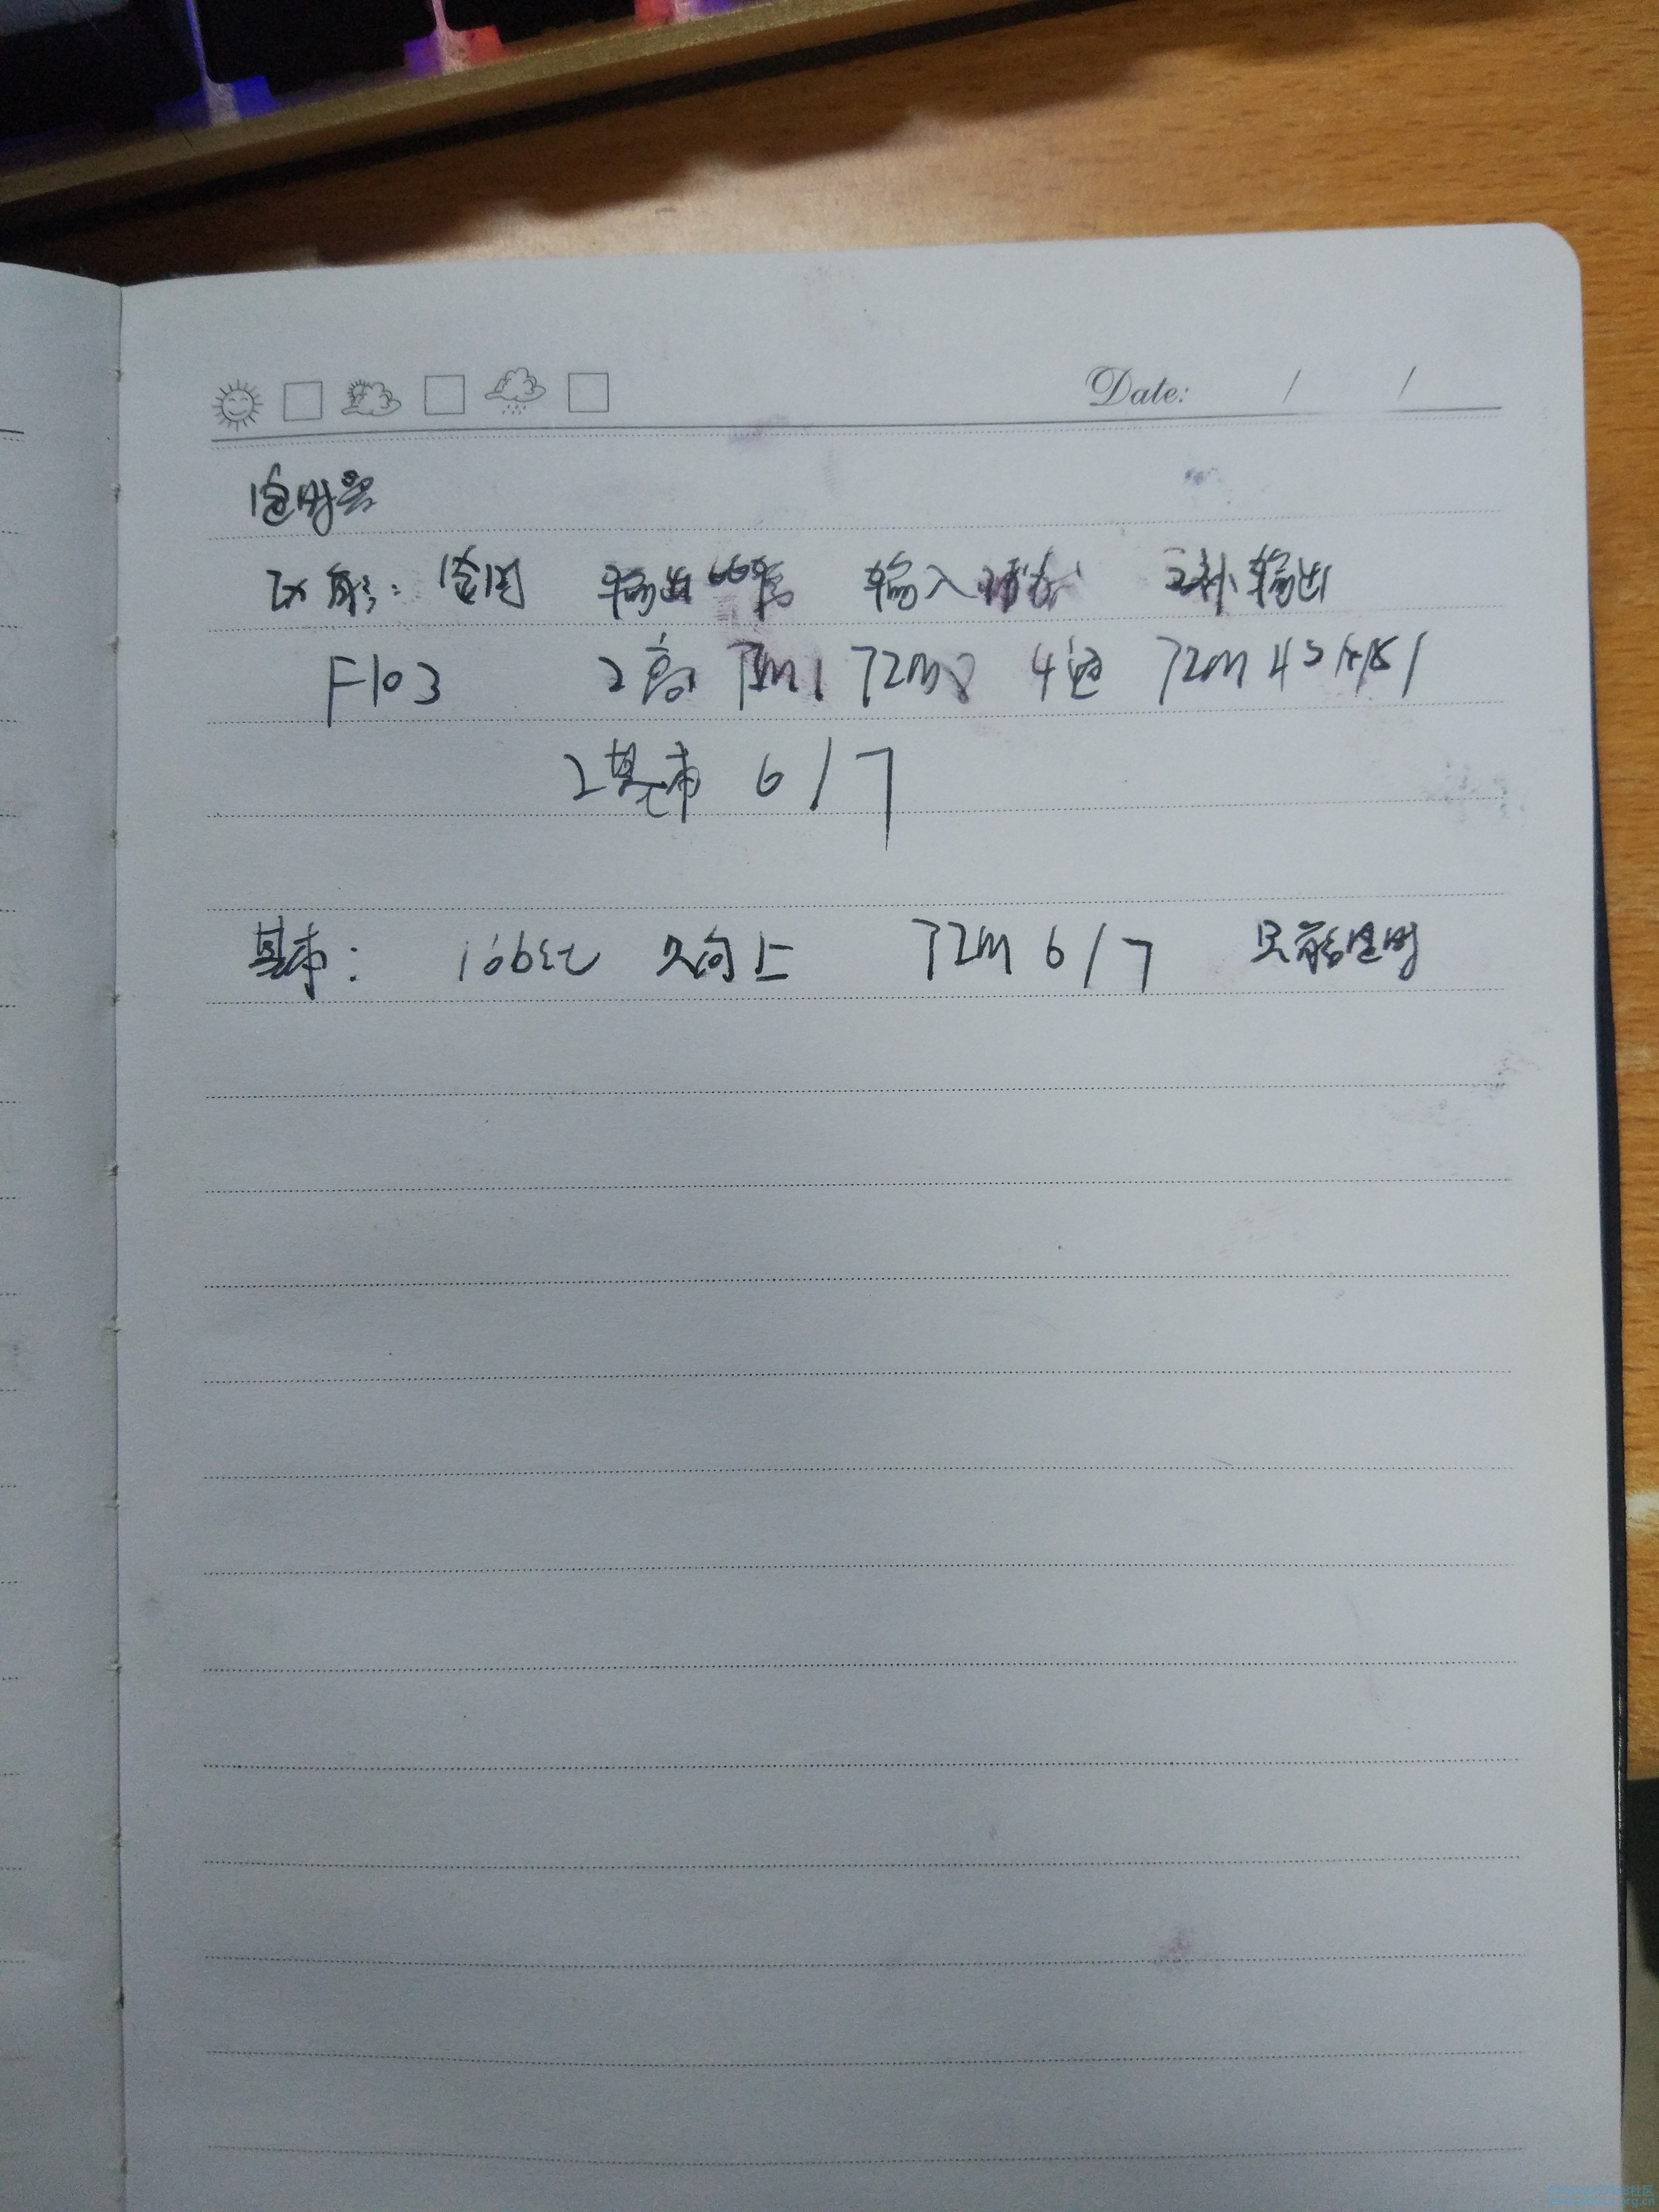 Date: / /
定时器
功能: 定时 输出比较 输入捕获 互补输出
F103 2高 72M 1 72M 8 4通 72M 4
2基本 6/7
基本: 16位 只向上 72M 6/7 只能定时